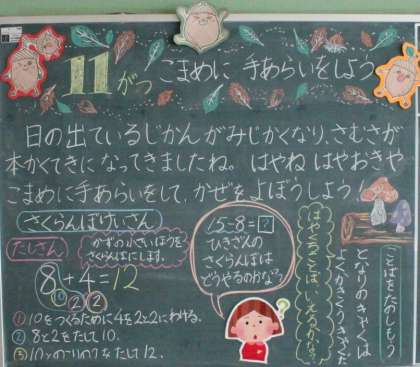 11がつ こまめに 手あらいをしよう
日の出ているじかんがみじかくなり、さむさが
本かくてきになってきましたね。はやね はやおきや
こまめに手あらいをして、かぜをよぼうしよう!
さくらんぼけいさん
たしざん
かずの小さいほうを
さくらんぼにします。
8+4=12
② ②
10
① 10をつくるために4を2と2にわける。
② 8と2をたして10。
③ 10とのこりの2をたして12。
15-8=?
ひきざんの
さくらんぼは
どうやるのかな?
ことばをたのしもう
となりのきゃくは
よくかきくうきゃくだ
はやくちことば いえるかな?